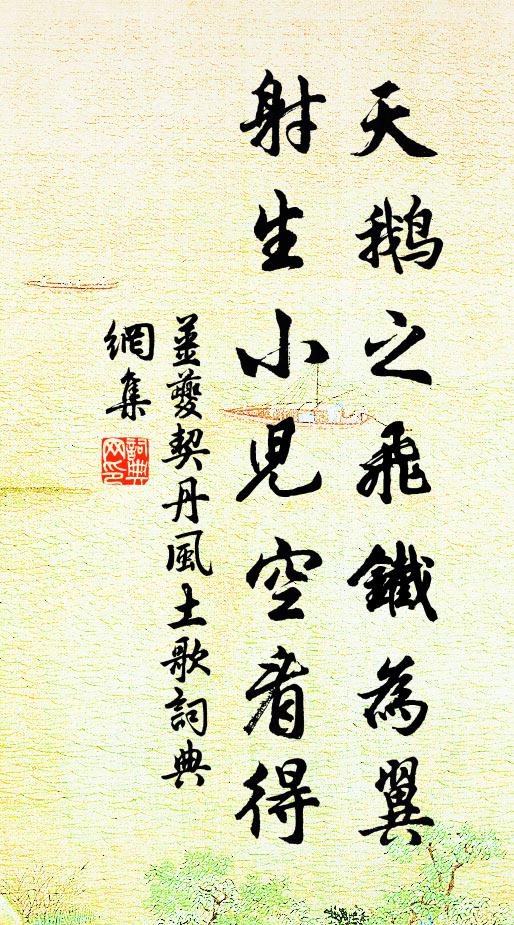 天鵝之飛鐵為翼
射生小兒空看得
姜夔契丹風土歌詞典
網集
詞典網印